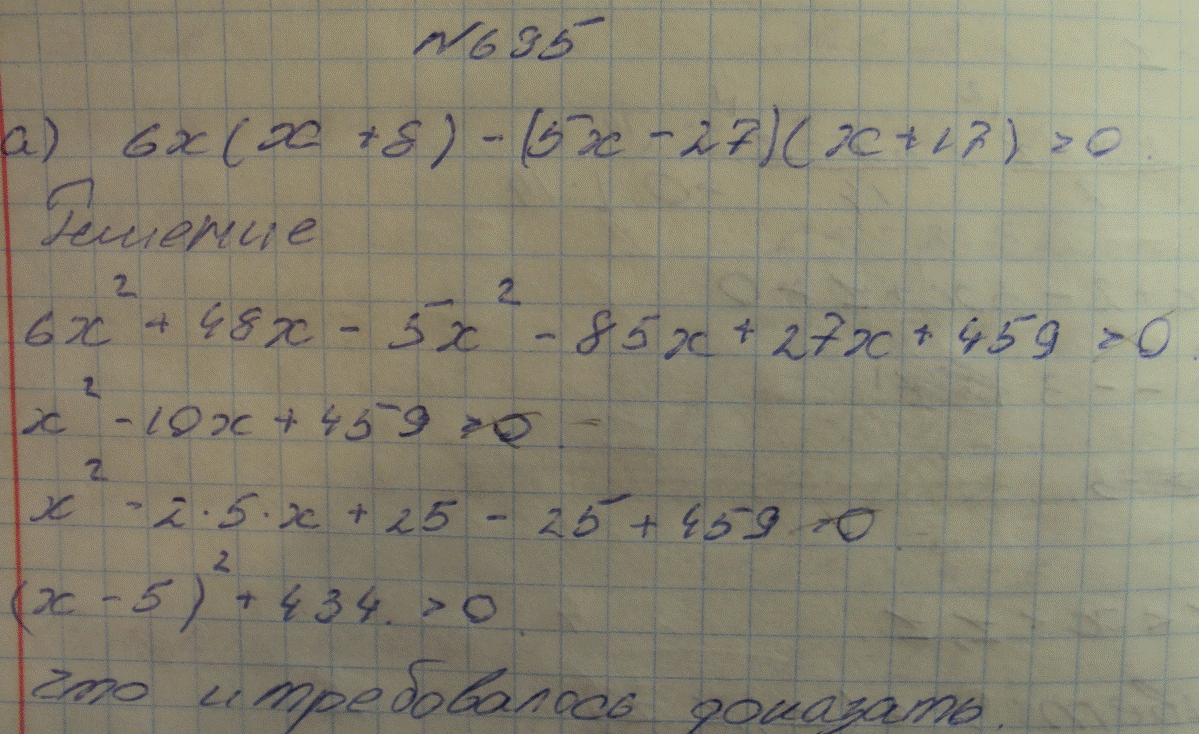 №695
а) 6x(x+8)-(5x-27)(x+17)>0.
Решение
6x²+48x-5x²-85x+27x+459>0.
x²-10x+459>0.
x²-2·5·x+25-25+459>0.
(x-5)²+434.>0.
что и требовалось доказать.